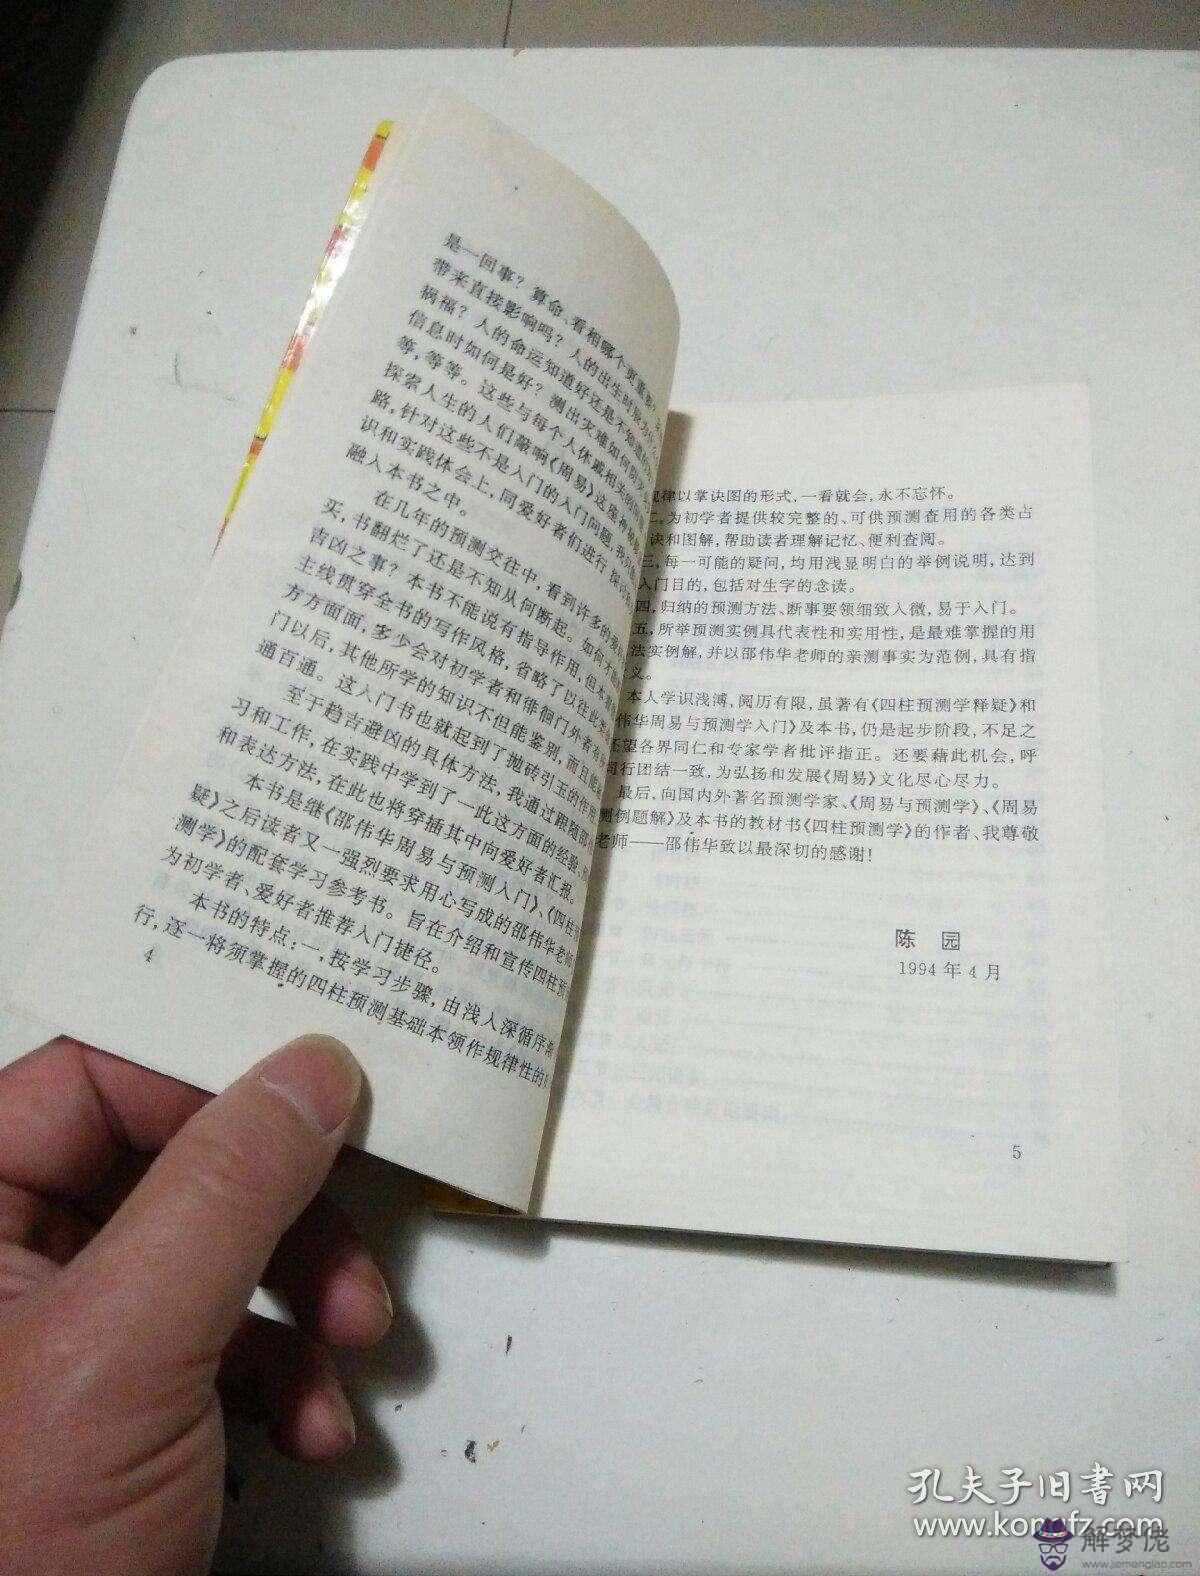 是一回事？算命、看相哪个更重要？
带来直接影响吗？人的出生时辰为什么
祸福？人的命运知道好还是不知道的
信息时如何是好？测出灾难如何防
等，等等。这些与每个人休戚相关的问
探索人生的人们敲响《周易》这座神
路，针对这些不是入门的入门问题，我
识和实践体会上，同爱好者们进行探讨
融入本书之中。
在几年的预测交往中，看到许多的爱
买，书翻烂了还是不知从何断起。如何才能
吉凶之事？本书不能说有指导作用，但本
主线贯穿全书的写作风格，省略了以往此类
方方面面，多少会对初学者和徘徊门外者
门以后，其他所学的知识不但能鉴别，而且能
通百通。这入门书也就起到了抛砖引玉的作用
至于趋吉避凶的具体方法，我通过跟随邵
习和工作，在实践中学到了一此这方面的经验
和表达方法，在此也将穿插其中向爱好者汇报。
本书是继《邵伟华周易与预测入门》、《四柱
疑》之后读者又一强烈要求用心写成的邵伟华老师
测学》的配套学习参考书。旨在介绍和宣传四柱预
为初学者、爱好者推荐入门捷径。
本书的特点：一，按学习步骤，由浅入深循序
行，逐一将须掌握的四柱预测基础本领作规律性的
4
规律以掌诀图的形式，一看就会，永不忘怀。
二，为初学者提供较完整的、可供预测查用的各类占
诀和图解，帮助读者理解记忆、便利查阅。
三，每一可能的疑问，均用浅显明白的举例说明，达到
入门目的，包括对生字的念读。
四，归纳的预测方法、断事要领细致入微，易于入门。
五，所举预测实例具代表性和实用性，是最难掌握的用
法实例解，并以邵伟华老师的亲测事实为范例，具有指
义。
本人学识浅溥，阅历有限，虽著有《四柱预测学释疑》和
伟华周易与预测学入门》及本书，仍是起步阶段，不足之
还望各界同仁和专家学者批评指正。还要藉此机会，呼
同行团结一致，为弘扬和发展《周易》文化尽心尽力。
最后，向国内外著名预测学家、《周易与预测学》、《周易
测例题解》及本书的教材书《四柱预测学》的作者、我尊敬
老师——邵伟华致以最深切的感谢！
陈 园
1994年4月
5
孔夫子旧书网
www.kongfz.com
解梦佬
www.jiemenglao.com